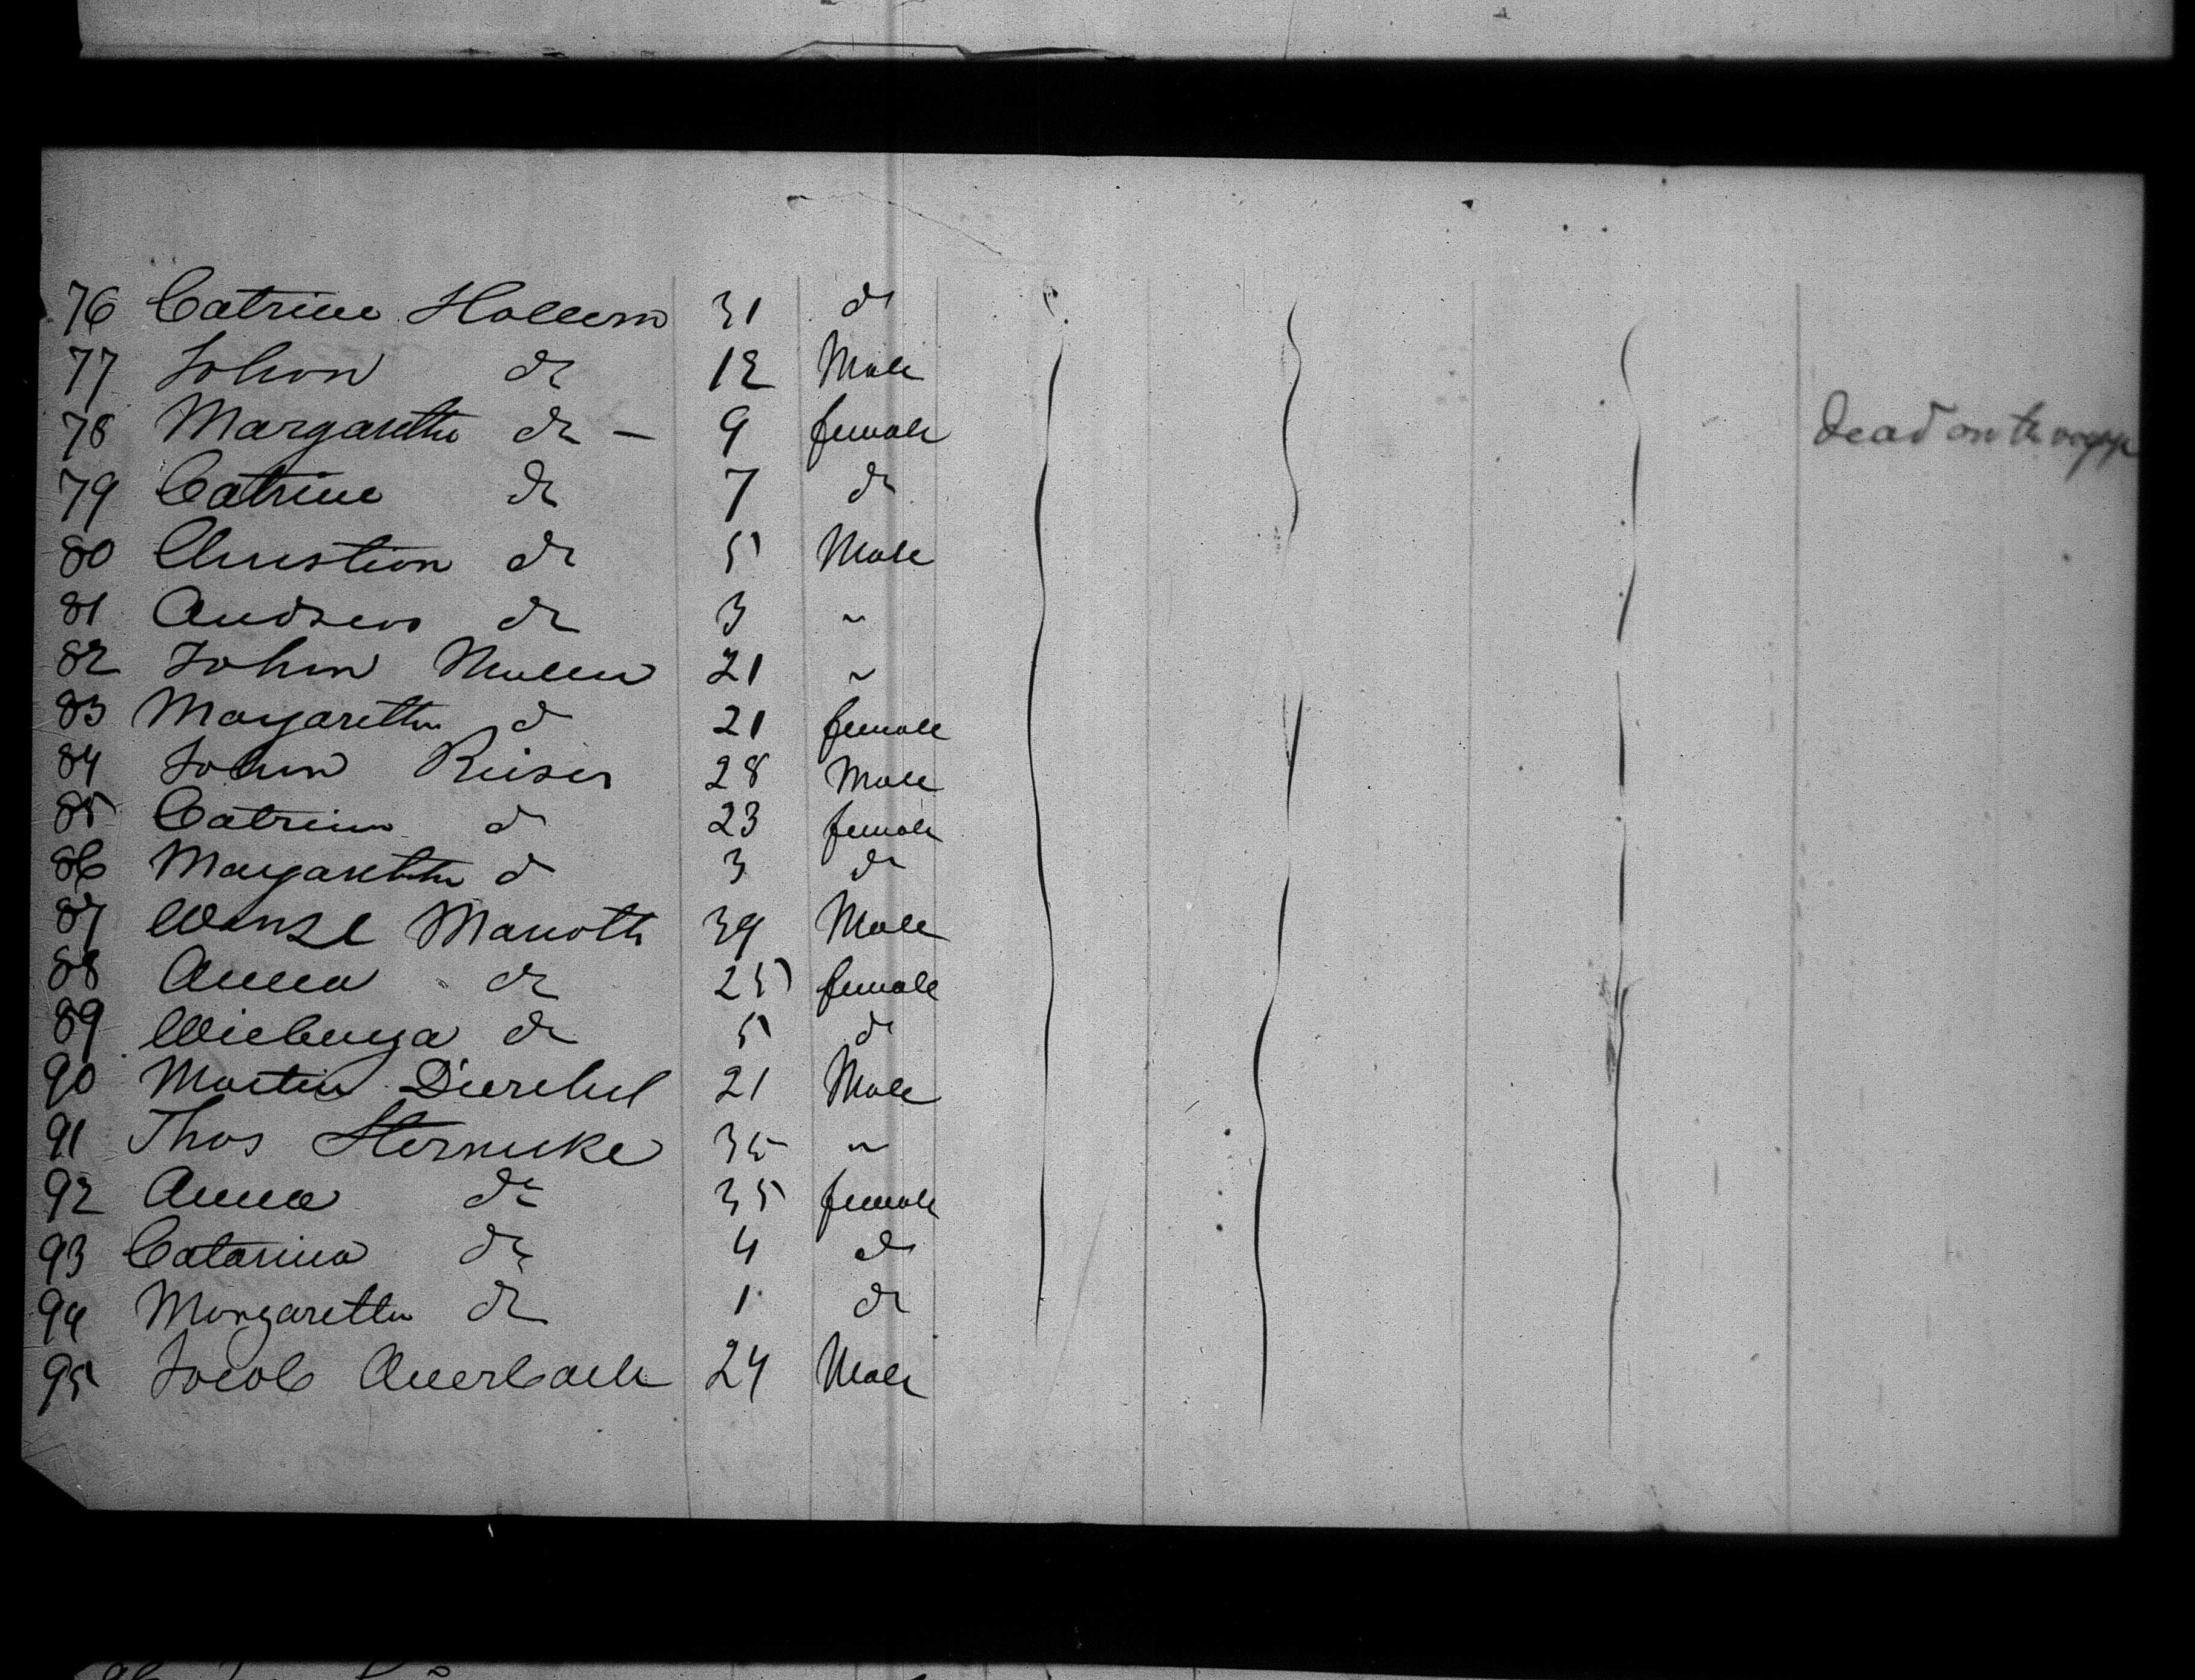 76 Catrine Hollern 31 do
77 Johon do 12 Male
78 Margaretha do — 9 female Dead on the voyage
79 Catrine do 7 do
80 Christion do 5 Male
81 Andreas do 3 "
82 John Muller 21 "
83 Margaretha do 21 female
84 Johan Reiser 28 Male
85 Catrina do 23 female
86 Margaretha do 3 do
87 Wenzl 39 Male
88 Anna do 25 female
89 do 5 do
90 Martin 21 Male
91 Thos Sternicke 35 "
92 Anna do 35 female
93 Catarina do 4 do
94 Margaretta do 1 do
95 Jacob Auerbach 24 Male